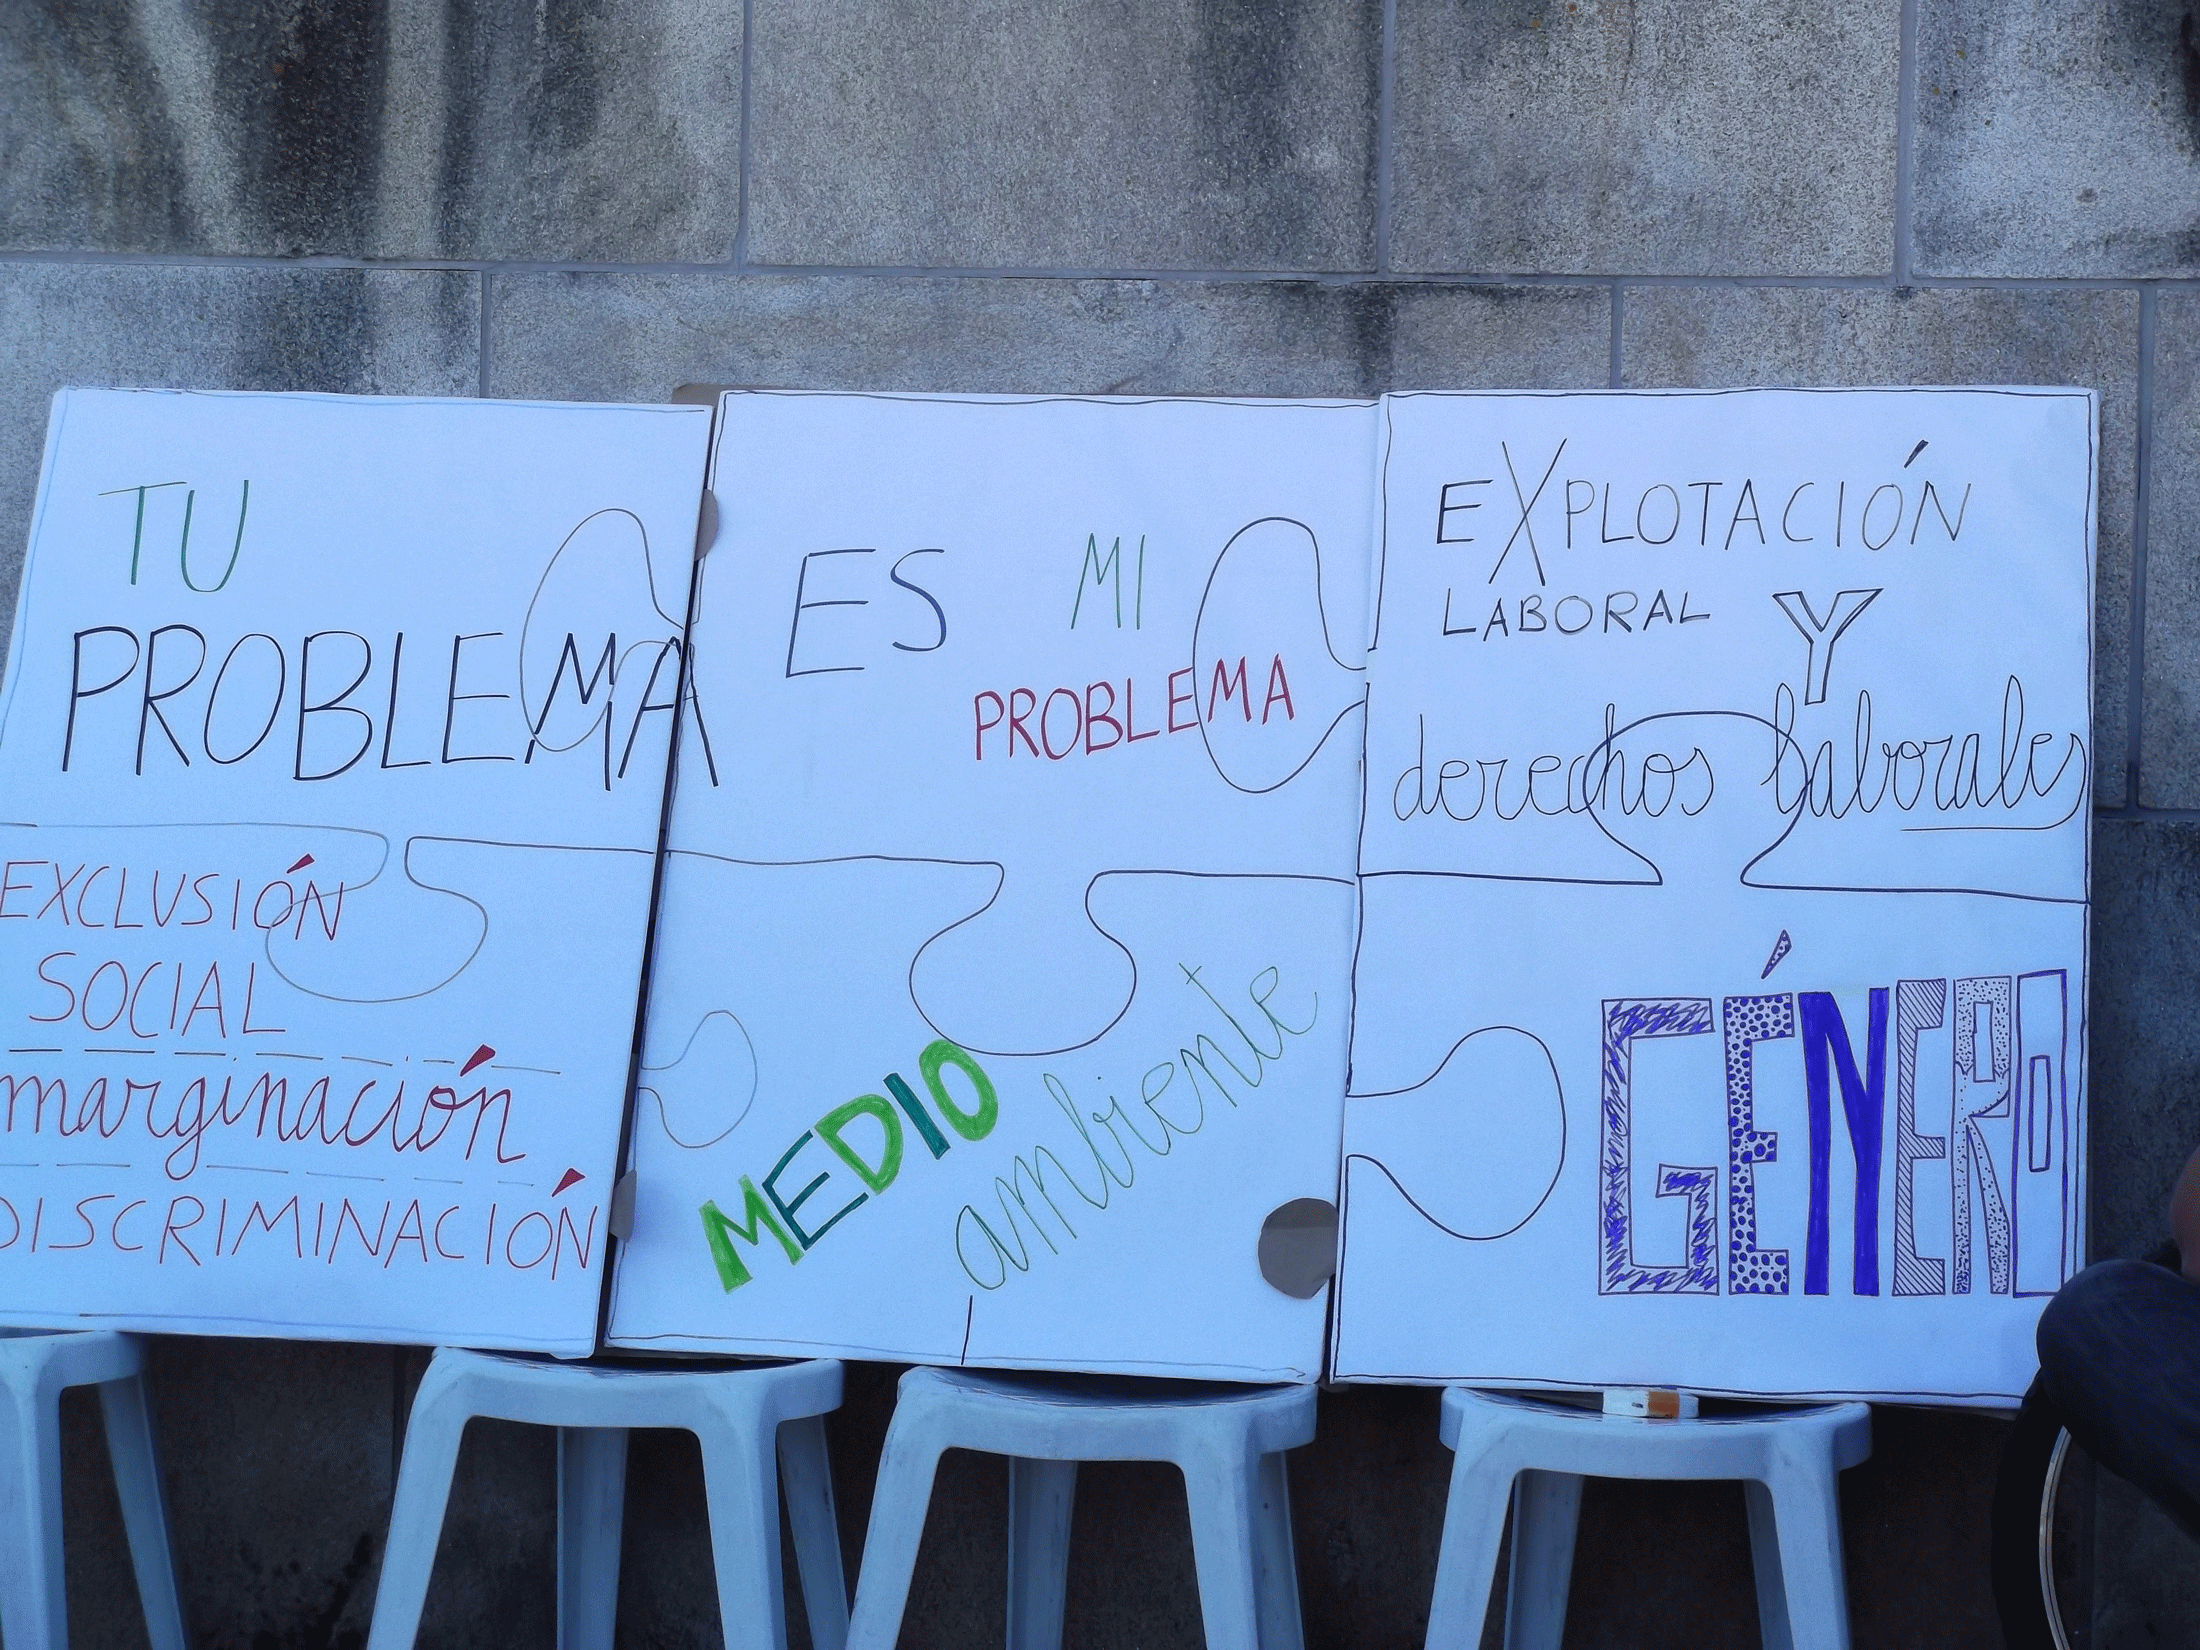 TU
PROBLEMA
ES MI
PROBLEMA
EXPLOTACIÓN
LABORAL Y
derechos laborales
EXCLUSIÓN
SOCIAL
marginación
DISCRIMINACIÓN
MEDIO
ambiente
GÉNERO